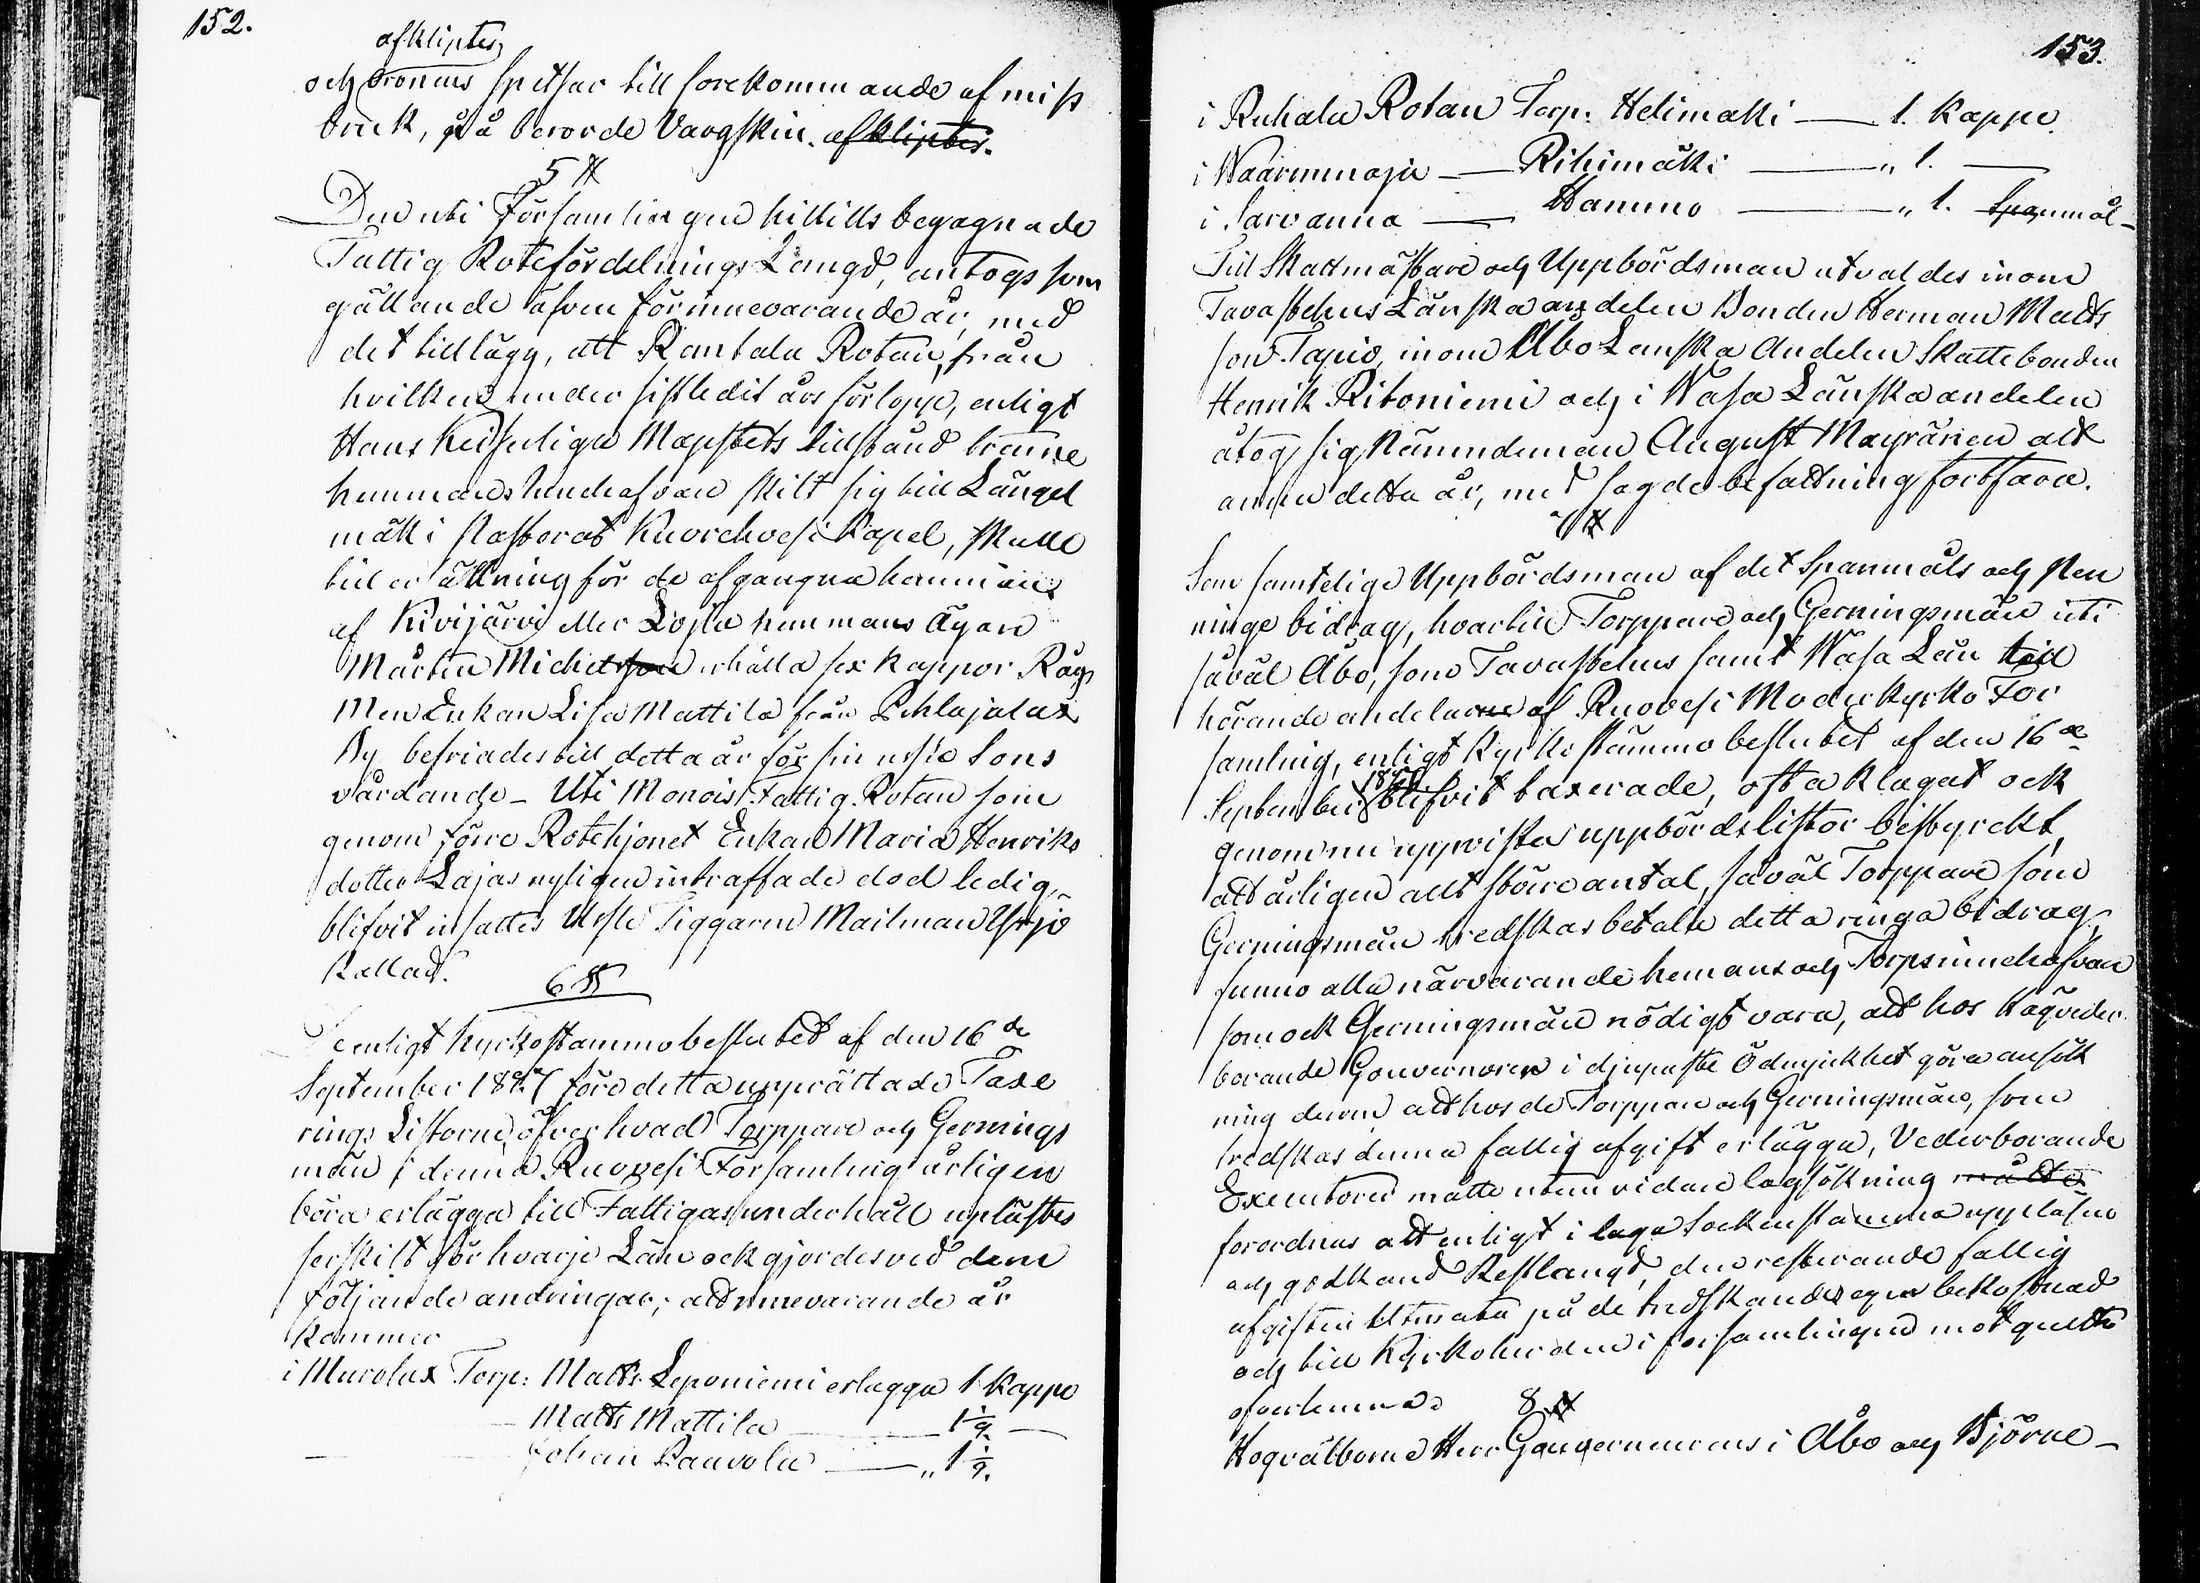 152.
afkliptes
och öronens spitsar till förekommande af miss
bruk, på berörde Vargskin. afkliptes.
5 §
Den uti Församlingen hittills begagnade
Fattig Rotefördelnings Längd, antogs som
gällande äfven för innevarande år, med
det tillägg, att Rantala Rotan, från
hvilken under sistledit års förlopp, enligt
Hans Kejserliga Majestets tillstånd trenne
hemmans innehafvare skilt sig till Längel
mäki Pastorat Kuorehvesi Kapel, skulle
till ersättning för de afgangna hemman
af Kivijärvi eller Lojla hemmans ägare
Mårten Michelsson erhålla sex kappor Råg
Men Enkan Lisa Mattila från Pihlajalax
By befriades till detta år för sin usle Sons
vårdande – Uti Monois Fattig Rotan som
genom förre Rotehjonet Enkan Maria Henriks
dotter Lajas nyligen intraffade död ledig
blifvit insattes Usle Tiggaren Mailman Yrjö
kallad.
6 §
De enligt Kyrkostammobeslutet af den 16de
September 18 före detta upprättade Taxe
rings Listorne, öfver hvad Torppare och Gernings
män i denna Ruovesi Församling årligen
böra erlägga till Fattigas underhåll uplästes
serskilt för hvarje Län och gjordes ved dem
följande andringar; att innevarande år
kommer
i Murolax Torp: Matts Leponiemi erlagga 1 kappe
— Matts Mattila — 1 1/2. —
— Johan Paavola — „ 1 1/2.
153.
i Ruhala Rotan Torp: Helimäki — 1. Kappe.
i Waarinmaja — Rihimäki — „ 1. —
i Sarvanna — Hanuno — „ 1. Spanmål–
Till Skattmästare och Uppbördsman utvaldes inom
Tavastehus Länska andelen Bonden Herman Matts
son Tapio, inom Åbo Länska Andelen Skattebonden
Henrik Ritoniemi och i Wasa Länska andelen
åtog sig Nämndeman August Mäyränen att
annu detta år, med sagde befattning fortfara.
7 §
Som samtelige Uppbördsman af det Spanmåls och Pen
ninge bidrag, hvartill Torppare och Gerningsmän uti
såväl Åbo, som Tavastehus samt Wasa Län till
hörande andelarne af Ruovesi Moderkyrko För
samling, enligt Kyrkostämmo beslutet af den 16de
September blifvit taxerade, ofta klagat ock
genom nu uppvista uppbördslistor bestyrckt,
att årligen allt större antal, såväl Torppare som
Gerningsmän tredskas betala detta ringa bidrag,
funno alla närvarande hemans och Torpsinnehafvare
som ock Gerningsmän nödigt vara, att hos Högveder
borande Gouvernoren i djupaste ödmjukhet göra ansök
ning derom att hos de Torppare och Gerningsmän, som
tredskas denna fattig afgift erlägga, Vederborande
Executorer matte utan vidare lagsökning måtte
forordnas att enligt i laga Sockenstämma upplasne
och godkand Restlangd, den resterande fattig
afgiften utmäta på de tredskandes egen bekostnad
och till Kyrkoherden i forsamlingen mot quitto
ofverlemnas 8 §
Hogvälborne Herr Gouverneurens i Åbo och Björne–